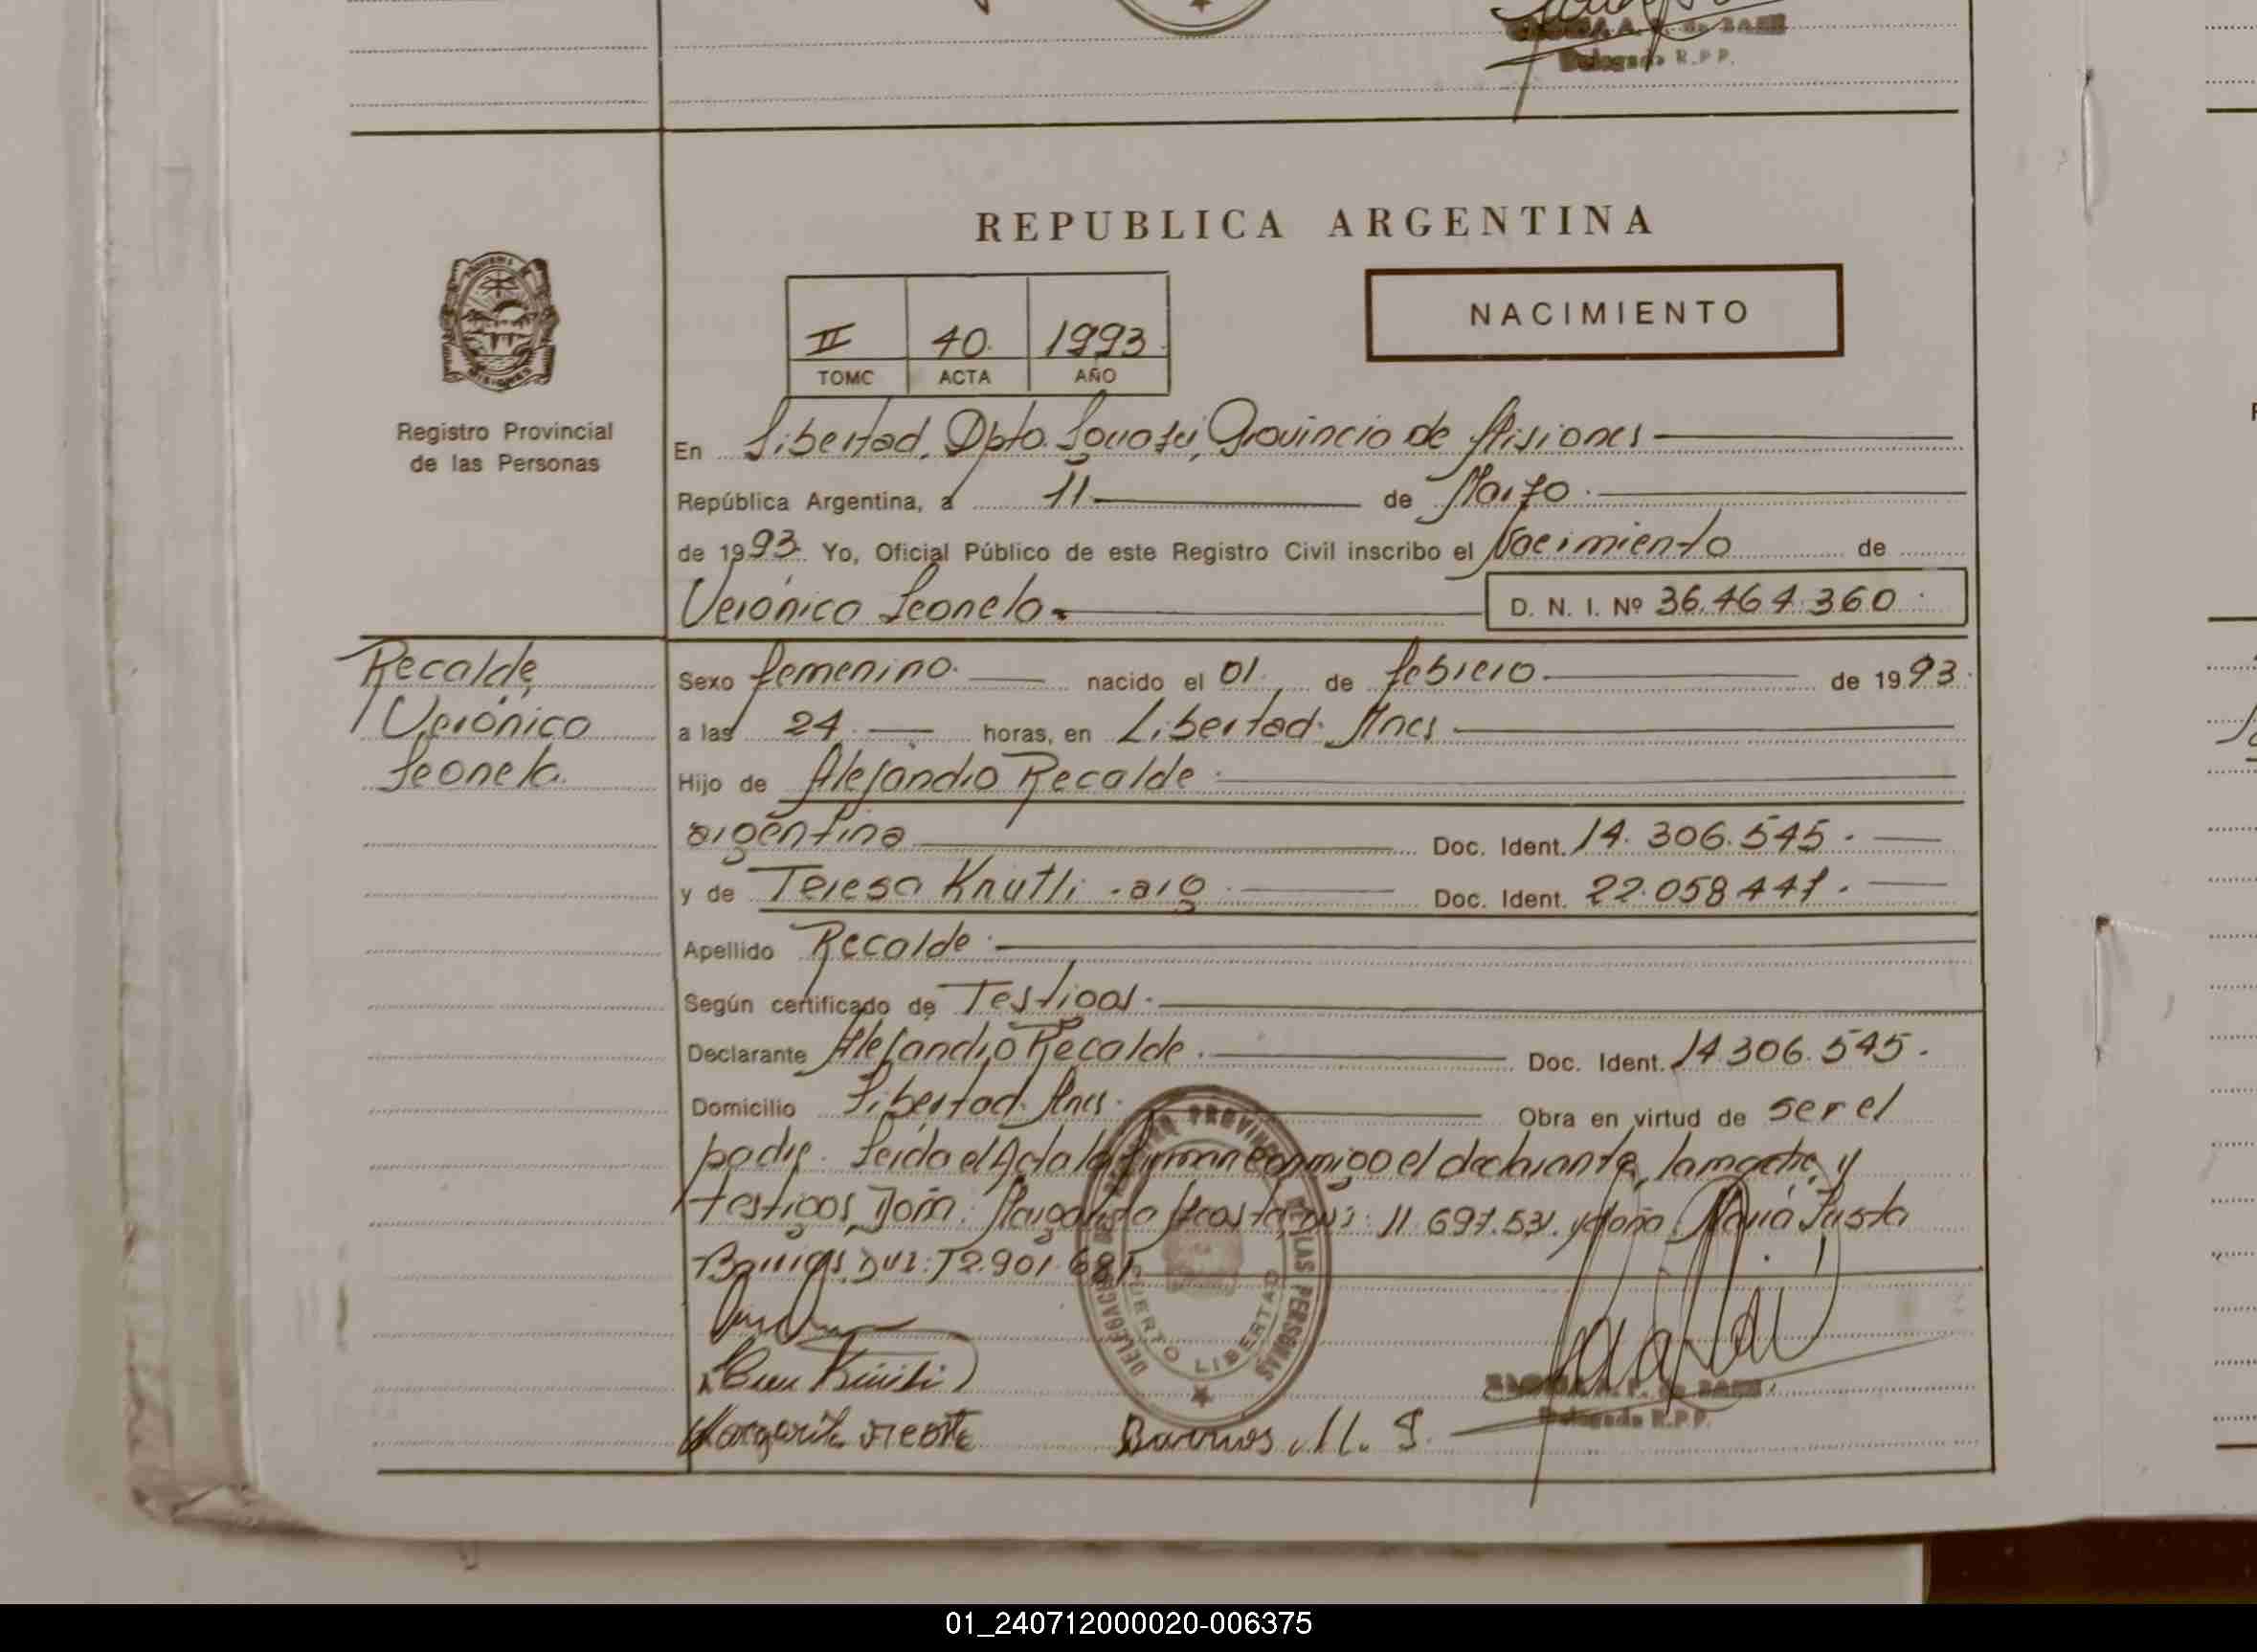 Delegado R.P.P.
REPUBLICA ARGENTINA
NACIMIENTO
II 40. 1993.
TOMO ACTA AÑO
Registro Provincial
de las Personas
En Libertad, Dpto. Iguazú, Provincia de Misiones
República Argentina, a 11 de Marzo.
de 1993. Yo, Oficial Público de este Registro Civil inscribo el Nacimiento de
Verónica Leonela. D. N. I. Nº 36.464.360.
Recalde,
Verónica
Leonela.
Sexo femenino. nacido el 01. de febrero. de 1993.
a las 24. horas, en Libertad. Mnes
Hijo de Alejandro Recalde.
argentina Doc. Ident. 14.306.545.
y de Teresa Knutli. arg. Doc. Ident. 22.058.441.
Apellido Recalde.
Según certificado de Testigos.
Declarante Alejandro Recalde. Doc. Ident. 14.306.545.
Domicilio Libertad. Mnes. Obra en virtud de ser el
padre. Leida el Acta la firman conmigo el declarante, la madre, y
testigos, Doña. Margarita Acosta, y doña. María Justa
Barrios
DELEGACION PROVINCIAL DE LAS PERSONAS
PUERTO LIBERTAD
Margarita Acosta Barrios M. J.
Delegada R.P.P.
01_240712000020-006375